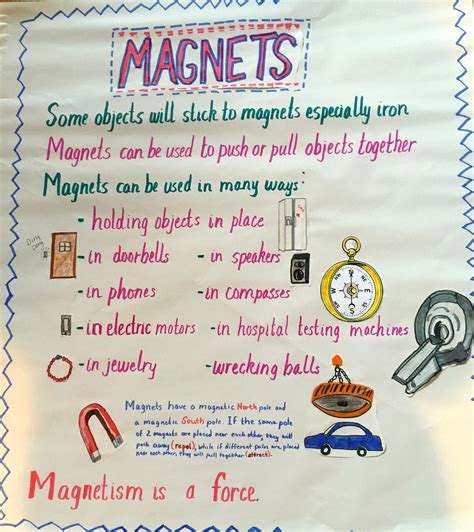 MAGNETS
Some objects will stick to magnets especially iron
Magnets can be used to push or pull objects together
Magnets can be used in many ways:
- holding objects in place
Ding Dong
- in doorbells - in speakers
- in phones - in compasses
- in electric motors - in hospital testing machines
- in jewelry - wrecking balls
Magnets have a magnetic North pole and
a magnetic South pole. If the same pole
of 2 magnets are placed near each other, they will
push away (repel), while if different poles are placed
near each other, they will pull together (attract).
Magnetism is a force.